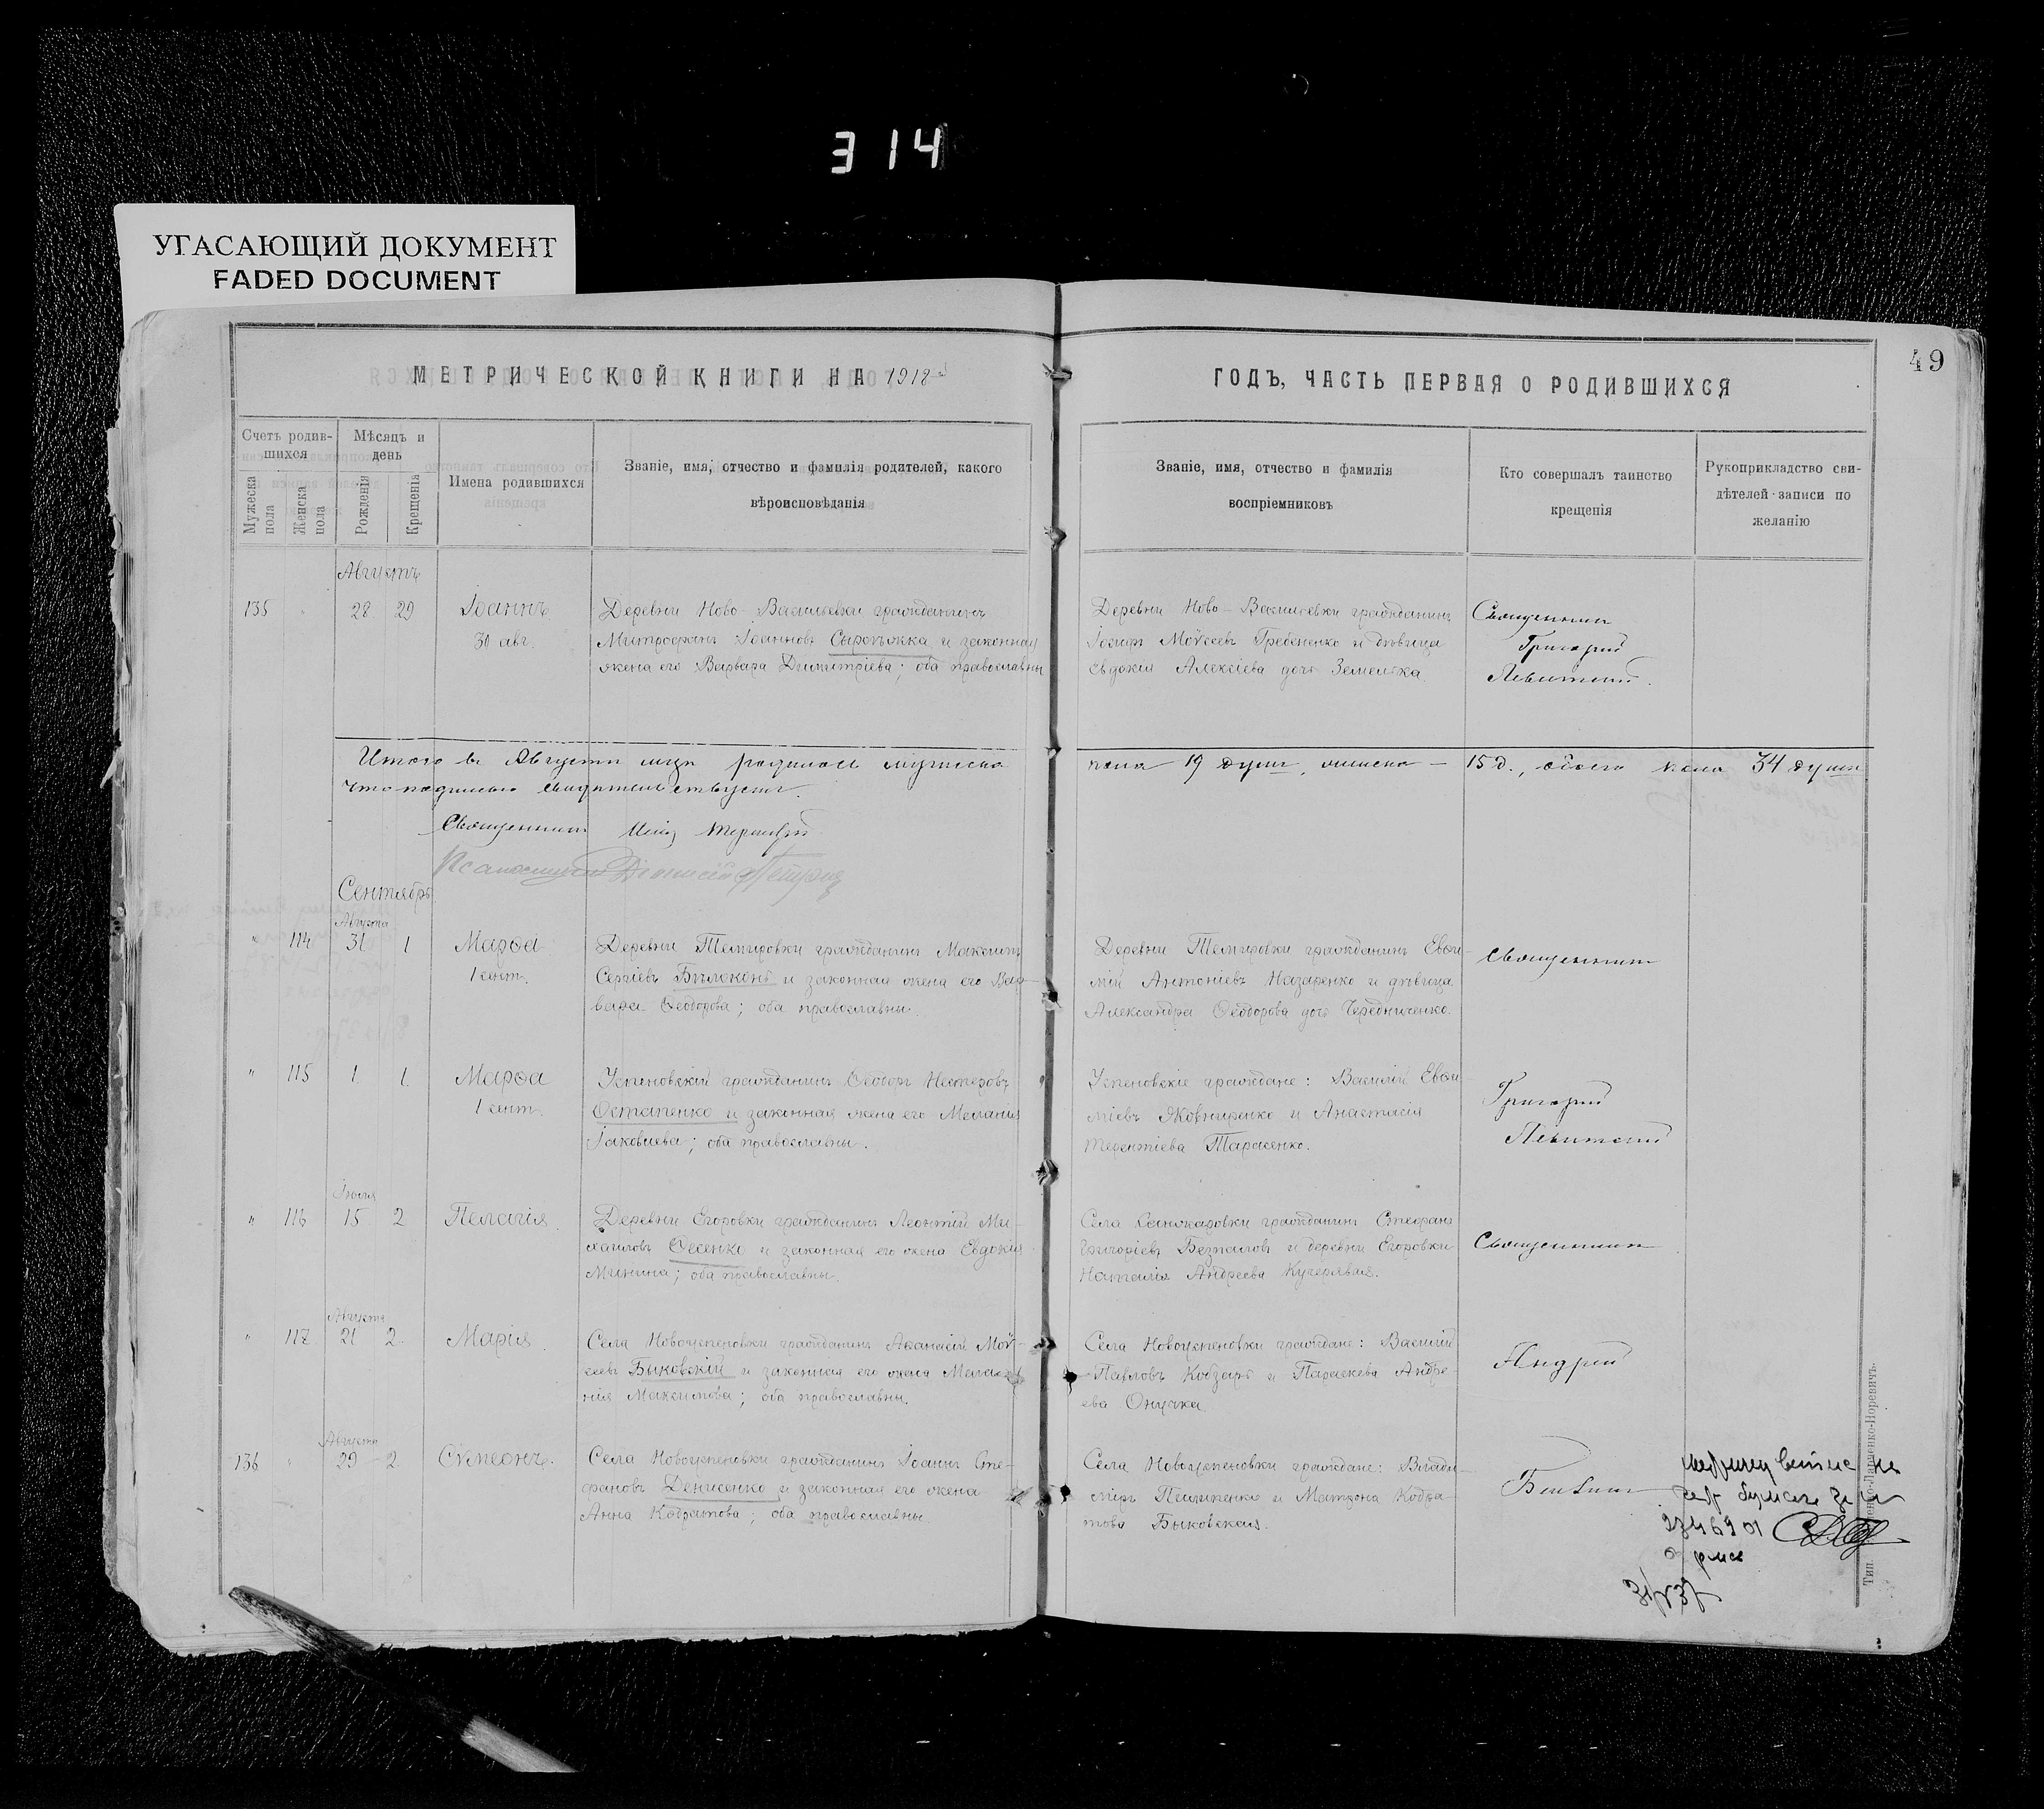 314
УГАСАЮЩИЙ ДОКУМЕНТ
FADED DOCUMENT
49
МЕТРИЧЕСКОЙ КНИГИ НА 1918й
ГОДЪ, ЧАСТЬ ПЕРВАЯ О РОДИВШИХСЯ
Счетъ родив-
шихся
Мужеска пола
Женска пола
Мѣсяцъ и
день
Рожденія
Крещенія
Имена родившихся
Званіе, имя, отчество и фамилія родителей, какого
вѣроисповѣданія
Званіе, имя, отчество и фамилія
воспріемниковъ
Кто совершалъ таинство
крещенія
Рукоприкладство сви-
дѣтелей записи по
желанію
Августъ
135 " 28 29 Іоаннъ
30 авг.
Деревни Ново-Васильевки гражданинъ
Митрофанъ Іоанновъ Сыроѣжка и законная
жена его Варвара Димитріева; оба православны
Деревни Ново-Васильевки гражданинъ
Іосифъ Моѵсеевъ Гребененко и дѣвица
Евдокия Алексіева дочь Земельска
Священникъ
Григорий
Левитский.
Итого въ Августѣ мцѣ родилось мужеска
пола 19 душъ, женска — 15 д., обоего пола 34 души
что подписью свидѣтельствуемъ.
Священникъ
Псаломщикъ Діонисій Петренко
Сентябрь
Августа
" 114 31 1 Марѳа
1 сент.
Деревни Темировки гражданинъ Максимъ
Сергіевъ Билоконь и законная жена его Вар-
вара Ѳеодорова; оба православны.
Деревни Темировки гражданинъ Евѳи-
мій Антоніевъ Назаренко и дѣвица
Александра Ѳеодорова дочь Чередниченко.
Священникъ
" 115 1 1. Марѳа
1 сент.
Успеновскій гражданинъ Ѳеодоръ Нестеровъ
Остапенко и законная жена его Меланія
Іаковлева; оба православны.
Успеновскіе граждане: Василій Евѳи-
міевъ Яковниренко и Анастасія
Терентіева Тарасенко.
Григорий
Левитский
Іюля
" 116 15 2 Пелагія.
Деревни Егоровки гражданинъ Леонтій Ми-
хаиловъ Ѳесенко и законная его жена Евдокія
Минина; оба православны.
Села гражданинъ Стефанъ
Григоріевъ Безпаловъ и деревни Егоровки
Наталія Андреева Кучерявая.
Священникъ
Августа
" 117 21 2. Марія.
Села Новоуспеновки гражданинъ Аѳанасій Моѵ-
сеевъ Быковскій и законная его жена Мела-
нія Максимова; оба православны.
Села Новоуспеновки граждане: Василій
Павловъ Кобзарь и Параскева Андре-
ева Онуцка.
Андрей
Августа
136 " 29 2 Сѵмеонъ.
Села Новоуспеновки гражданинъ Іоаннъ Сте-
фановъ Денисенко и законная его жена
Анна Кодратова; оба православны.
Села Новоуспеновки граждане: Влади-
міръ Пилипенко и Матрона Кодра-
това Быковская.